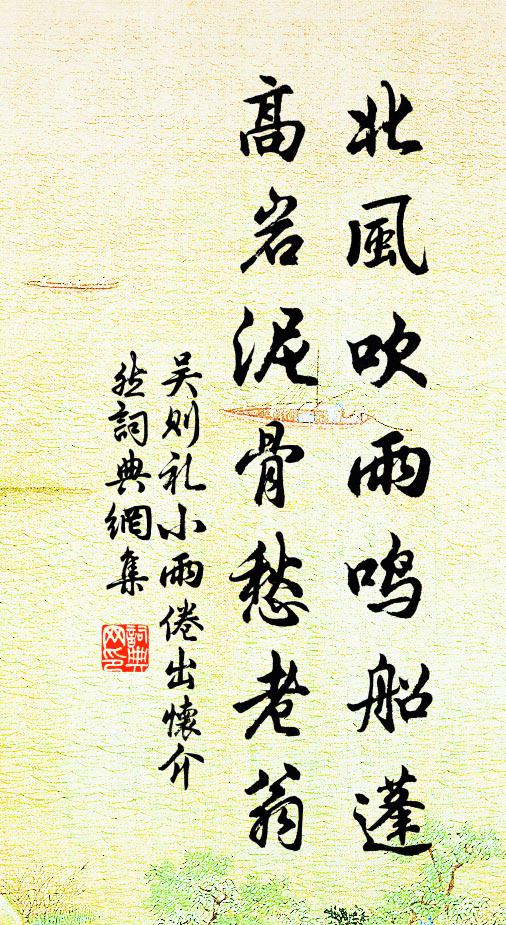 北風吹雨鸣船蓬
高岩泥骨愁老翁
吴则礼小雨倦出懷介
然詞典網集
詞典网印